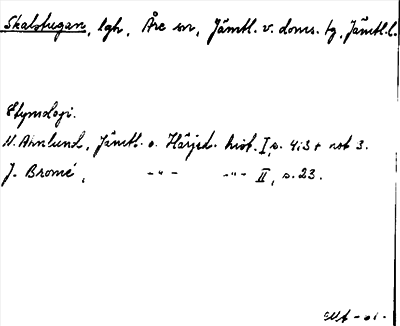 Skalstugan, lgh, Åre sn, Jämtl. v. doms. tg, Jämtl. l.
Etymologi.
N. Ahnlund, Jämtl. o. Härjed. hist. I, s. 413 + not 3.
J. Bromé, -"- -"- II, s. 23.